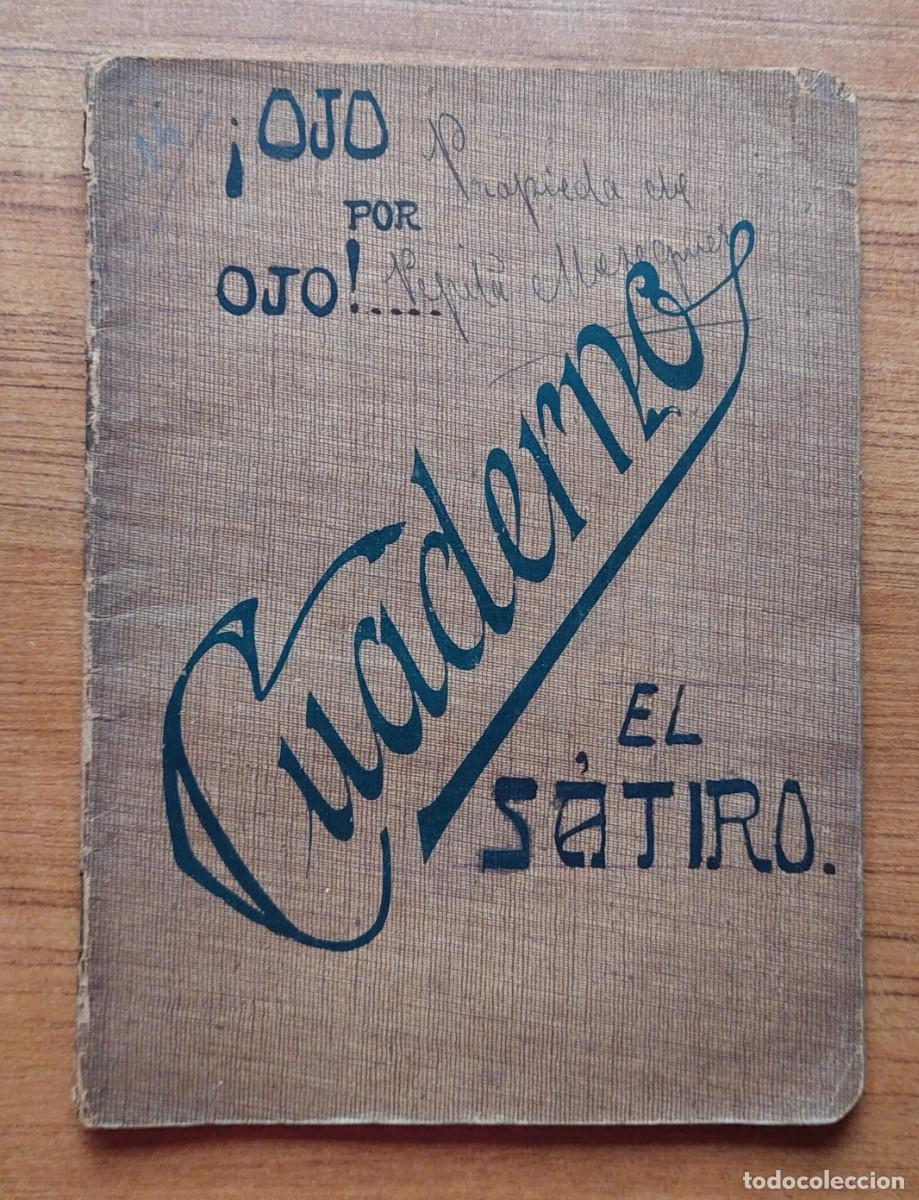 14
¡OJO
POR
OJO!.....
Propieda de
Pepita Meseguer
Cuaderno
EL
SÁTIRO.
todocoleccion